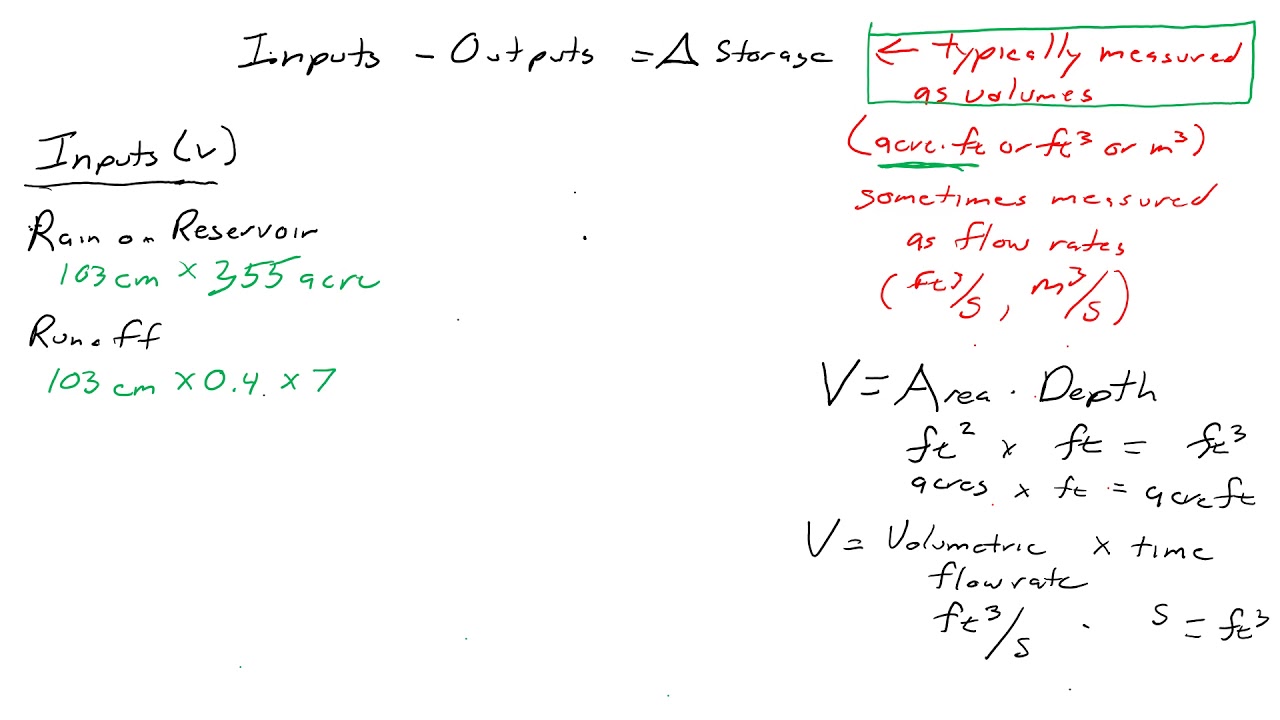 Inputs - Outputs = Δ Storage
← typically measured
as volumes
(acre·ft or ft³ or m³)
sometimes measured
as flow rates
(ft³/s, m³/s)
Inputs (V)
Rain on Reservoir
103 cm × 355 acre
Runoff
103 cm × 0.4 × 7
V = Area · Depth
ft² × ft = ft³
acres × ft = acre ft
V = Volumetric × time
flow rate
ft³/s · s = ft³